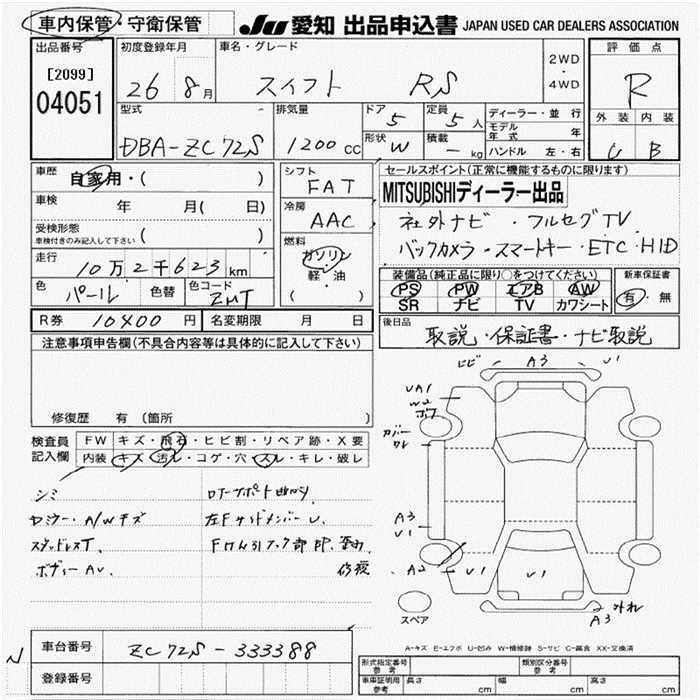 車内保管・守衛保管
JU 愛知 出品申込書 JAPAN USED CAR DEALERS ASSOCIATION
出品番号 初度登録年月 車名・グレード 評価点
[2099] 26 8月 スイフト RS 2WD・4WD R
04051
型式 排気量 ドア 5 定員 5人 ディーラー・並行 外装 内装
モデル年式 年
DBA-ZC72S 1200cc 形状 W 積載 - kg ハンドル 左・右 U B
車歴 自家用・( )
シフト FAT
セールスポイント(正常に機能するものに限ります)
MITSUBISHIディーラー出品
車検 年 月( 日)
冷房 AAC
社外ナビ・フルセグTV
受検形態 ( )
車検付きのみ記入して下さい
燃料 ガソリン・軽・油 ( )
バックカメラ・スマートキー・ETC・HID
走行 10万2千623km
装備品(純正品に限り○をつけてください) 新車保証書
色 パール 色替 色コード ZMT
PS PW エアB AW 有・無
SR ナビ TV カワシート
R券 10400円 名変期限 月 日
後日品 取説・保証書・ナビ取説
注意事項申告欄(不具合内容等は具体的に記入して下さい)
修復歴 有 (箇所 )
検査員記入欄 FW キズ・飛石・ヒビ割・リペア跡・X要
内装 キズ・汚レ・コゲ・穴・スレ・キレ・破レ
シミ
A/Wキズ
スタッドレスT.
ボディーAU.
左Fサイドメンバー U.
修復
ヒビ A3 U1
UA1
W2
カバー
A3
U1
A2 U1 U1
外れ
A3
スペア
A-キズ E-エクボ U-凹み W-補修跡 S-サビ C-腐食 XX-交換済
N
車台番号 ZC72S-333388
登録番号
形式指定番号 参考 類別区分番号 参考
車庫証明用 参考 長さ cm 幅 cm 高さ cm